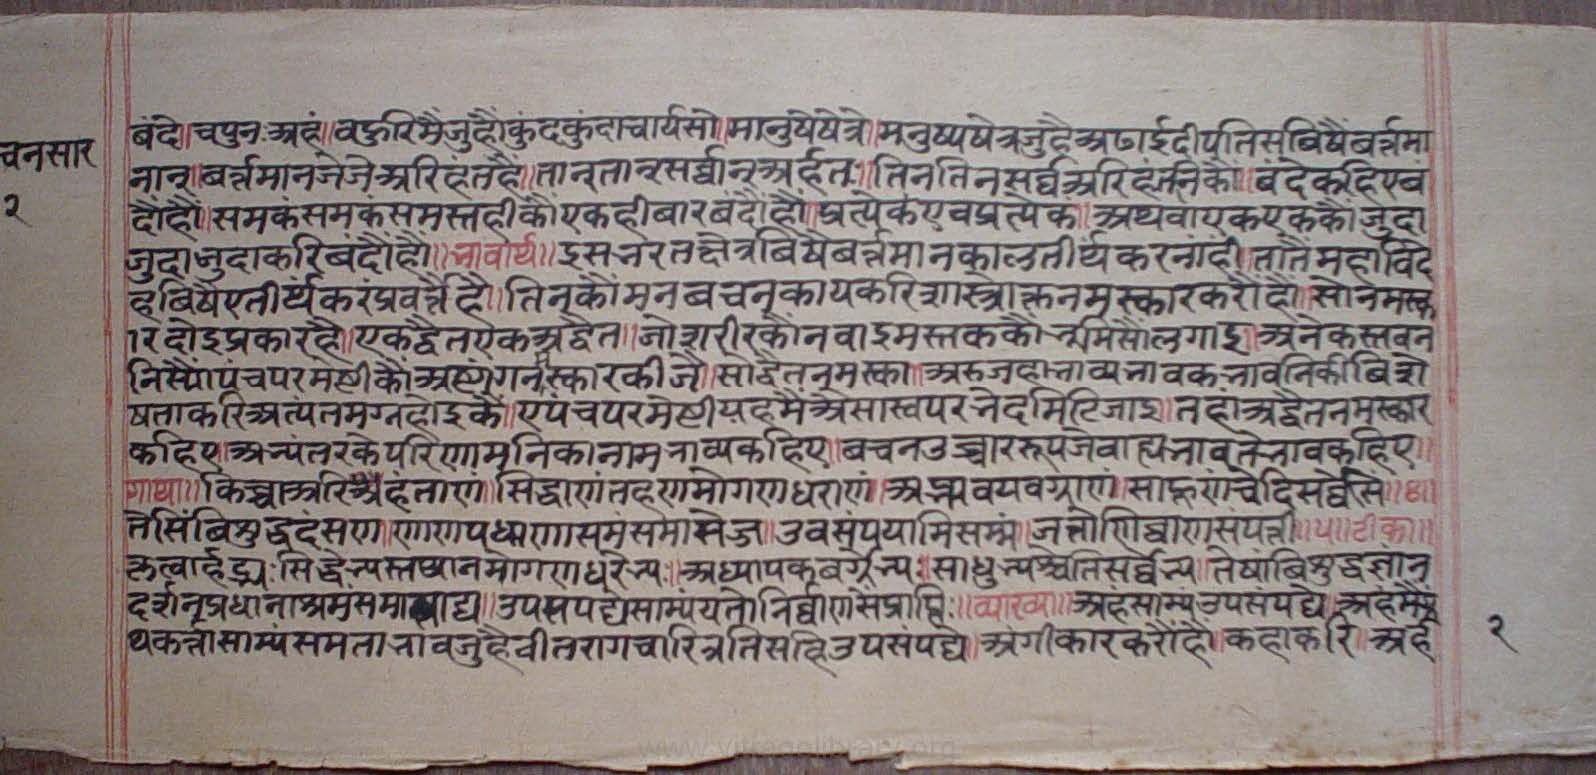 चनसार
२
बंदे॥चपुनःअहं॥वहुरिमैंजुहौंकुंदकुंदाचार्यसो॥मानुषेषेत्रे॥मनुष्यषेत्रजुहैअढाईदीपतिसबिषैंबर्त्तमा
नान्॥बर्त्तमानजेजेअरिहंतहैं॥तान्तान्सर्व्वान्अर्हतः॥तिनतिनसर्व्वअरिहंतनिकौं॥बंदेकहिएबं
दौंहौं॥समकंसमकंसमस्तहीकौंएकहीबारबंदौंहौं॥प्रत्येकंएवप्रत्येकं॥अथवाएकएककौंजुदा
जुदाजुदाकरिबंदौंहौं॥भावार्थ॥इसभरतक्षेत्रबिषैबर्त्तमानकालतीर्थंकरनांही॥तातैंमहाविदे
हबिषैएतीर्थंकरंप्रवर्त्तैहै॥तिनकौंमनबचनकायकरिशास्त्रोक्तनमस्कारकरौंहौं॥सोनमस्का
रदोइप्रकारहै॥एकद्वैतएकअद्वैत॥जोशरीरकौंनवाइमस्तककौंभूमिसौंलगाइ॥अनेकस्तवन
निस्यौंपंचपरमेष्टीकौंअष्टांगनमस्कारकीजै॥सोद्वैतनमस्का॥अरुजहाभाव्यभावकभावनिकीबिशे
षताकरिअत्यंतमग्नहोइकैं॥एपंचपरमेष्टीयहमैंअैसास्वपरभेदमिटिजाइ॥तहांअद्वैतनमस्कार
कहिए॥अभ्यंतरकेपरिणामनिकानामभाव्यकहिए॥बचनउच्चाररूपजेवाह्यभावतेभावककहिए॥
गाथा॥किच्चाअरिहंताणं॥सिद्धाणंतहणमोगणधराणं॥अज्झावयवग्गाणं॥साहूणंचेदिसव्वेसिं॥४॥
तेसिंबिशुद्धदंसण॥णाणपधाणासमंसमासेज्ज॥उवसंपयामिसम्मं॥जत्तोणिव्वाणसंपत्ती॥५॥टीका॥
कृत्वार्हद्भ्यःसिद्धेभ्यस्तथानमोगणधरेभ्यः॥अध्यापकबर्गेभ्यः॥साधुभ्यश्चेतिसर्व्वेभ्यः॥तेषांबिशुद्धज्ञान
दर्शनप्रधानाश्रमसमासाद्य॥उपसंपद्येसाम्यंयतोनिर्व्वाणसंप्राप्तिः॥व्याख्या॥अहंसाम्यंउपसंपद्ये॥अहमैंग्रं
थकर्त्तासाम्यंसमताभावजुहैवीतरागचारित्रतिसहिउपसंपद्ये॥अंगीकारकरौंहौं॥कहाकरि॥अर्ह
२